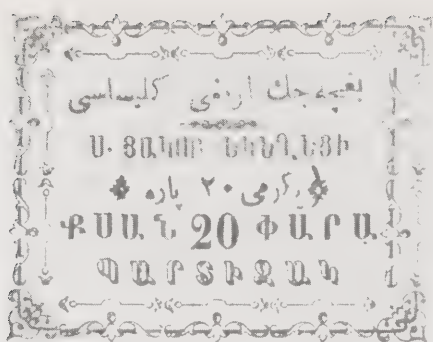 بغچه جك ارمنى كليساسى
Ս. ՅԱԿՈԲ ԵԿԵՂԵՑԻ
يگرمى ٢٠ پاره
ՔՍԱՆ 20 ՓԱՐԱ
ՊԱՐՏԻԶԱԿ